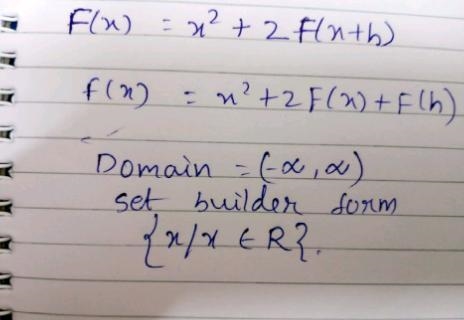 F(x) = x² + 2 F(x+h)
f(x) = x² + 2 F(x) + F(h)
Domain = (-∞, ∞)
set builder form
{x/x ∈ R}.